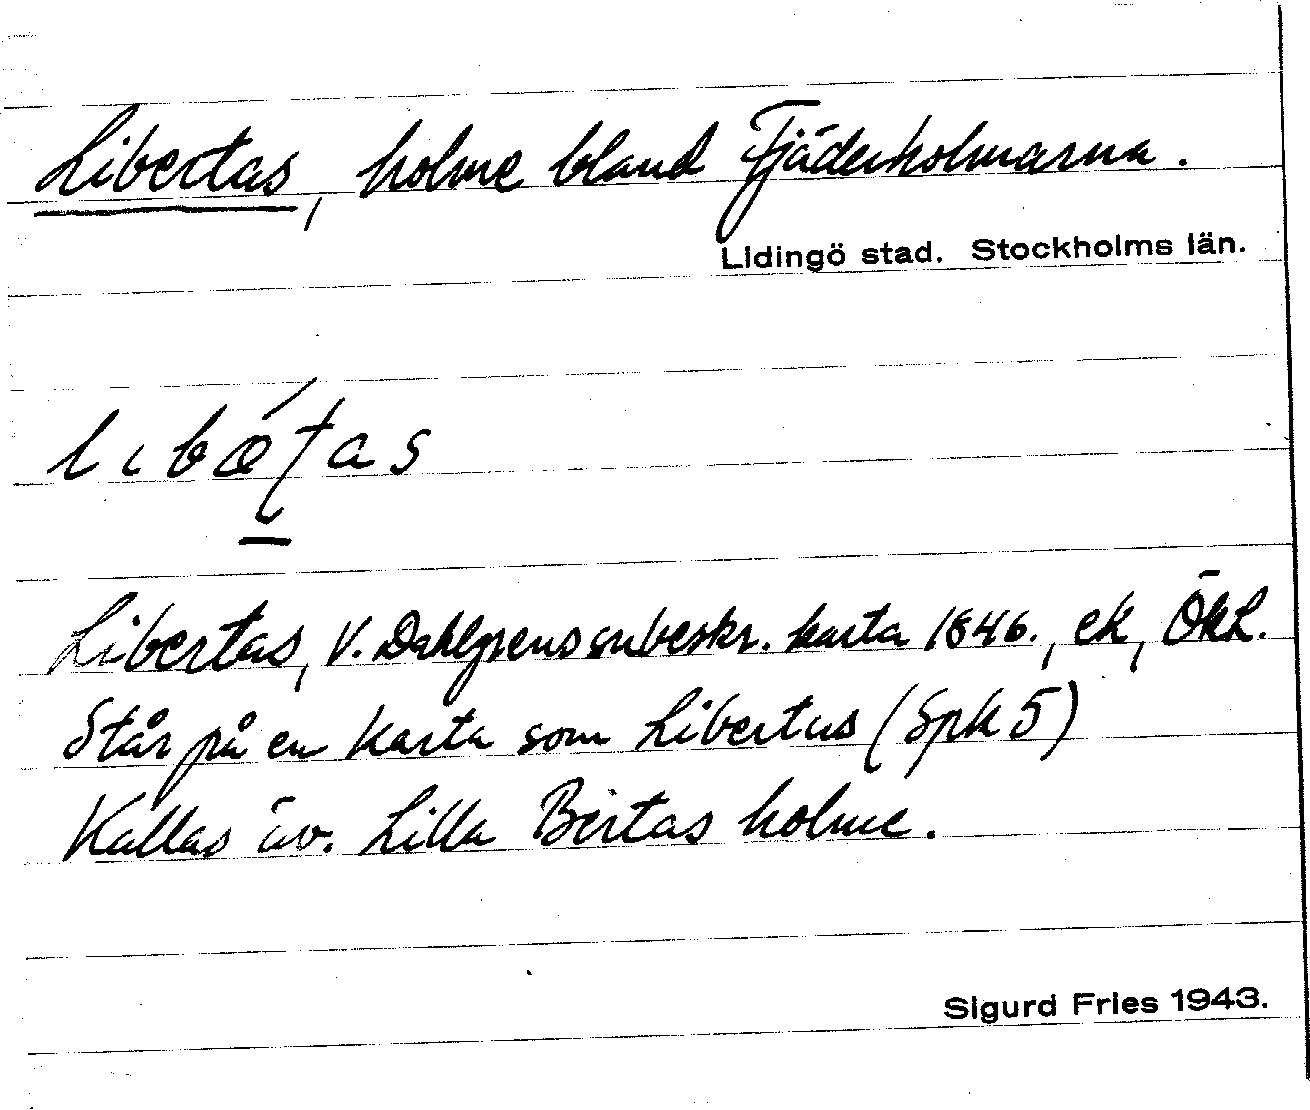 Libertas, holme bland Fjäderholmarna.
Lidingö stad. Stockholms län.
Libertas, V. Dahlgrens karta 1846., ek, ÖkL.
Står på en karta som Libertus (Spk 5)
Kallas äv. Lilla Bertas holme.
Sigurd Fries 1943.